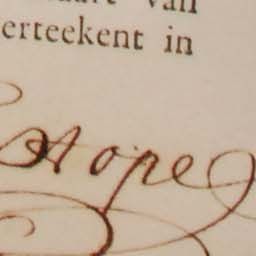 van
erteekent in
Hope